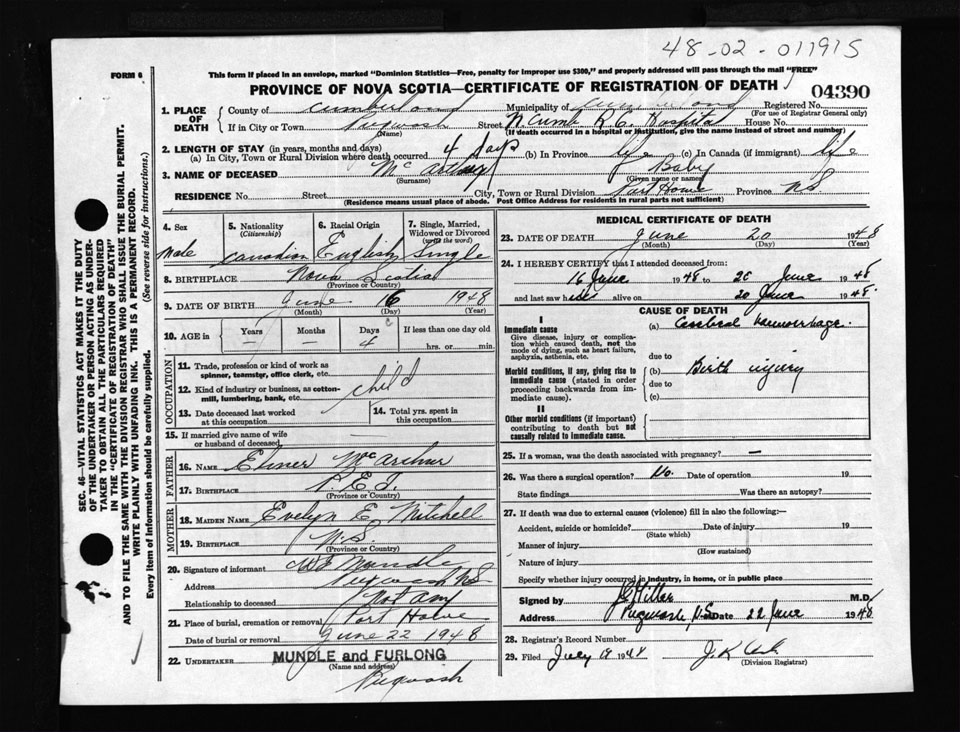 48-02-011915
FORM 6
This form if placed in an envelope, marked "Dominion Statistics—Free, penalty for improper use $300," and properly addressed will pass through the mail "FREE"
PROVINCE OF NOVA SCOTIA—CERTIFICATE OF REGISTRATION OF DEATH
04390
1. PLACE OF DEATH
County of Cumberland Municipality of Cumberland Registered No.
(For use of Registrar General only)
If in City or Town Pugwash Street N. Cumb R.C. Hospital House No.
(Name) (If death occurred in a hospital or institution, give the name instead of street and number)
2. LENGTH OF STAY (in years, months and days)
(a) In City, Town or Rural Division where death occurred 4 days (b) In Province life (c) In Canada (if immigrant) life
3. NAME OF DECEASED Baby
(Surname) (Given name or names)
RESIDENCE No. Street City, Town or Rural Division Port Howe Province NS
(Residence means usual place of abode. Post Office Address for residents in rural parts not sufficient)
4. Sex 5. Nationality (Citizenship) 6. Racial Origin 7. Single, Married, Widowed or Divorced (write the word)
Male Canadian English Single
8. BIRTHPLACE Nova Scotia
(Province or Country)
9. DATE OF BIRTH June 16 1948
(Month) (Day) (Year)
10. AGE in Years Months Days If less than one day old
— — 4 hrs. or min.
OCCUPATION
11. Trade, profession or kind of work as spinner, teamster, office clerk, etc.
12. Kind of industry or business, as cotton-mill, lumbering, bank, etc. child
13. Date deceased last worked at this occupation
14. Total yrs. spent in this occupation
15. If married give name of wife or husband of deceased —
FATHER
16. NAME Elmer McArthur
17. BIRTHPLACE P.E.I.
(Province or Country)
MOTHER
18. MAIDEN NAME Evelyn E Mitchell
19. BIRTHPLACE N.S.
(Province or Country)
20. Signature of informant Mundle
Address Pugwash NS
Relationship to deceased Not any
21. Place of burial, cremation or removal Port Howe
Date of burial or removal June 22 1948
22. UNDERTAKER MUNDLE and FURLONG
(Name and address)
Pugwash
MEDICAL CERTIFICATE OF DEATH
23. DATE OF DEATH June 20 1948
(Month) (Day) (Year)
24. I HEREBY CERTIFY that I attended deceased from:
16 June 1948 to 20 June 1948
and last saw alive on 20 June 1948
CAUSE OF DEATH
I
Immediate cause
Give disease, injury or complication which caused death, not the mode of dying, such as heart failure, asphyxia, asthenia, etc.
(a) Cerebral haemorrhage
due to
Morbid conditions, if any, giving rise to immediate cause (stated in order proceeding backwards from immediate cause).
(b) Birth injury
due to
(c)
II
Other morbid conditions (if important) contributing to death but not causally related to immediate cause.
25. If a woman, was the death associated with pregnancy? —
26. Was there a surgical operation? No. Date of operation 19
State findings Was there an autopsy?
27. If death was due to external causes (violence) fill in also the following:—
Accident, suicide or homicide? Date of injury 19
(State which)
Manner of injury
(How sustained)
Nature of injury
Specify whether injury occurred in industry, in home, or in public place
Signed by Millar M.D.
Address Pugwash, N.S. Date 22 June 1948
28. Registrar's Record Number
29. Filed July 19 1948 J.K.
(Division Registrar)
SEC. 46—VITAL STATISTICS ACT MAKES IT THE DUTY
OF THE UNDERTAKER OR PERSON ACTING AS UNDER-
TAKER TO OBTAIN ALL THE PARTICULARS REQUIRED
IN THE "CERTIFICATE OF REGISTRATION OF DEATH"
AND TO FILE THE SAME WITH THE DIVISION REGISTRAR WHO SHALL ISSUE THE BURIAL PERMIT.
WRITE PLAINLY WITH UNFADING INK. THIS IS A PERMANENT RECORD.
Every item of information should be carefully supplied. (See reverse side for instructions.)